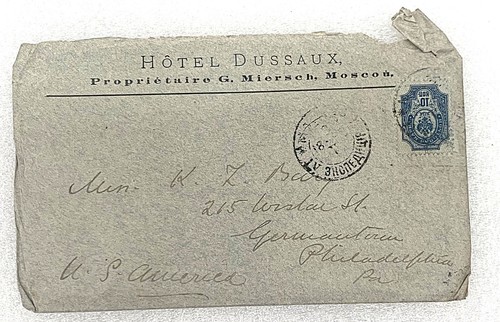 HÔTEL DUSSAUX,
Propriétaire G. Miersch, Moscou.
10
КОП
IV ЭКСПЕДИЦІЯ
K. Z
215 Wistar St.
Germantown
Philadelphia
Pa
U. S. America